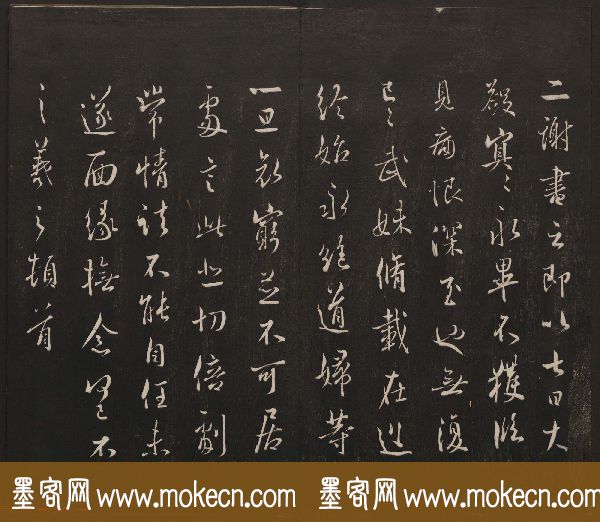 二謝書云即以七日大
殮冥冥永畢不獲臨
見痛恨深至也無復
已已武妹脩載在道
終始永絕道婦等
一旦哀窮並不可居
處言此悲切倍劇
常情諸不能自任未
遂面緣撫念何已不
之羲之頓首
墨客网 www.mokecn.com 墨客网 www.mokecn.com